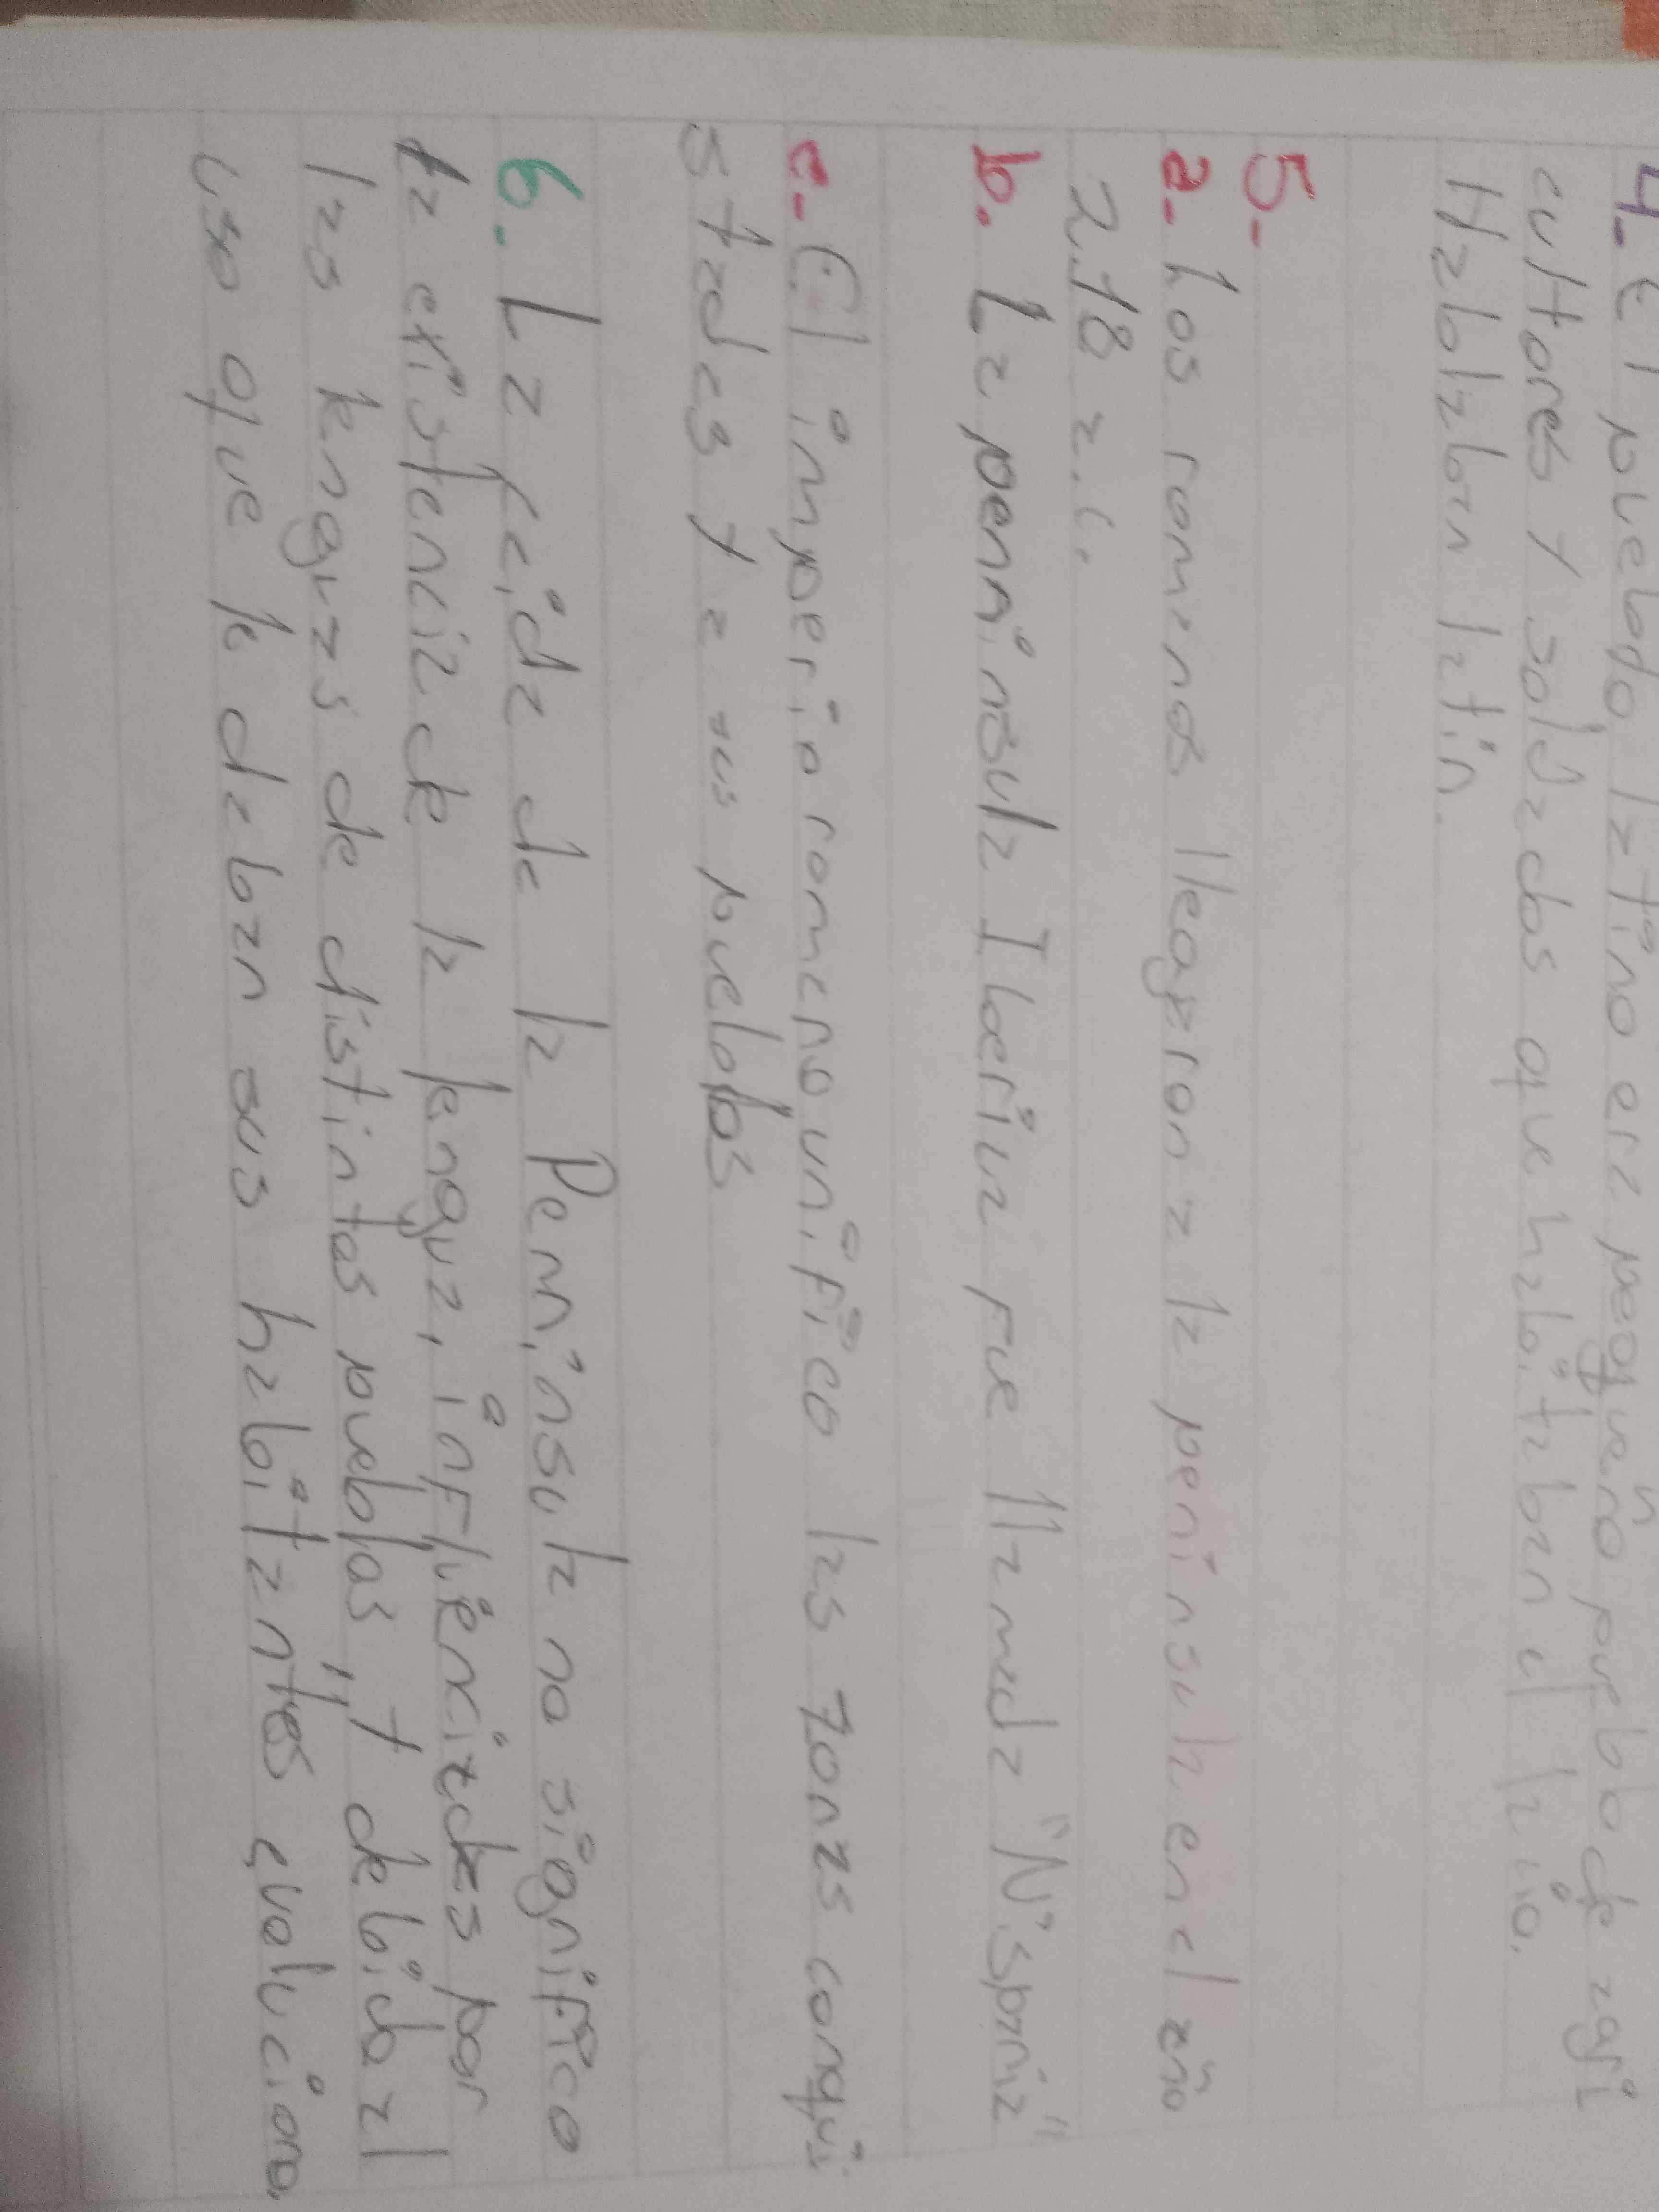 4. El pueblo latino era pequeño pueblo de agri
cultores y soldados que habitaban el lazio.
Hablaban latin.
5-
a. Los romanos llegaron a la peninsula en el año
218 a.C.
b. La penninsula Iberia fue llamada "Nispania"
c- El imperio romano unifico las zonas conqui
stadas y a sus pueblos
6. La de la Penninsula no significo
la existencia de la lengua, influenciadas por
las lenguas de distintos pueblos, y debido al
uso que le daban sus habitantes evoluciono.